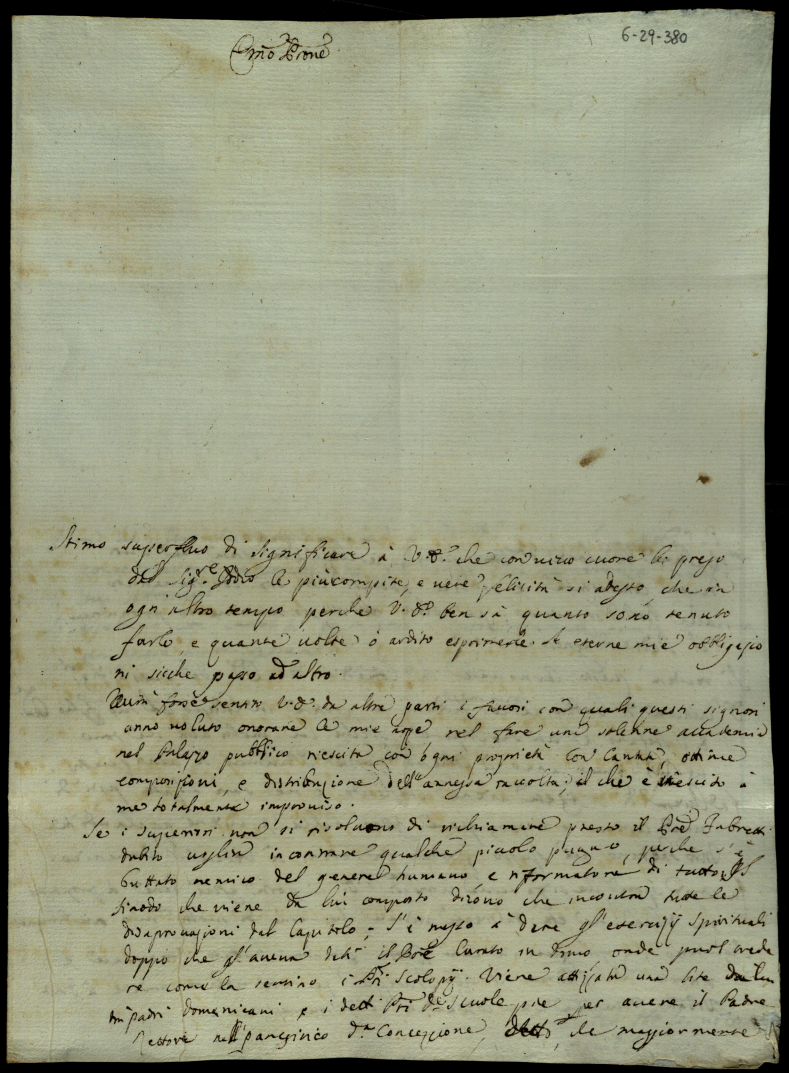 6-29-380
Emo Prone
Stimo superfluo di significare à V.E. che con vivo cuore le prego
dal Sig.re Iddio le più compite, e vere felicità si adesso, che in
ogn'altro tempo perche V.E. ben sà quanto sono tenuto
farlo e quante volte ò ardito esprimerle le eterne mie obbligazio
ni sicche passo ad altro.
forse sentito V.E. da altre parti i favori con quali questi signori
anno voluto onorare le mie nel fare una solenne accademia
nel Palazzo pubblico riescita con ogni proprietà con Cantata, ottime
composizioni, e distribuzione dell'annessa raccolta, il che è riescito à
me totalmente improviso.
Se i superiori non si risolvono di richiamare presto il Pre Fabretti
dubito voglia incontrare qualche piccolo perche s'è
buttato nemico del genere humano e riformatore di tutto. Il
sinodo che viene da lui composto dicono che incontra tutte le
disaprovazioni del Capitolo; S'è messo à dare gl'esercizij spirituali
doppo che gl'aveva dati il Pre Curato in onde puol crede
re come la sentino i Pri Scolopij. Viene attizzata una lite
padri domenicani e i detti Pri de Scuole pie per avere il Padre
Rettore nell panegirico d.a Concezzione, che maggiormente